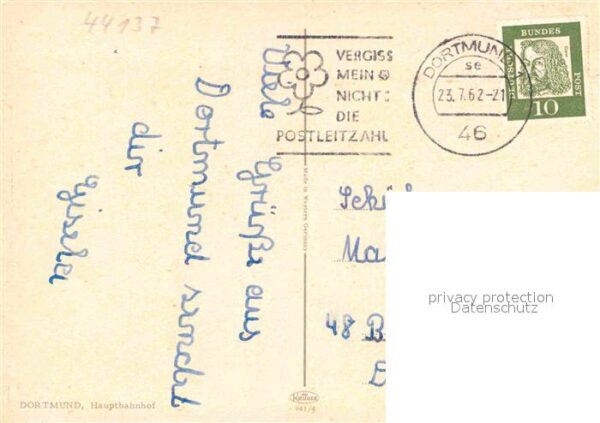 44137
VERGISS
MEIN
NICHT:
DIE
POSTLEITZAHL
DORTMUND 1
se
23.7.62-21
46
DEUTSCHE BUNDESPOST
10
Viele Grüße aus
Dortmund sendet
dir
Gisela
Made in Western Germany
48 B
privacy protection
Datenschutz
DORTMUND, Hauptbahnhof